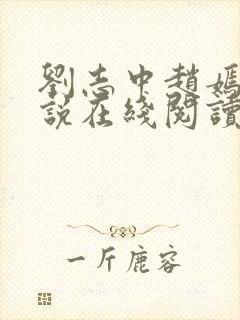 劉志中趙嫣
說在綫閱讀
一斤鹿容